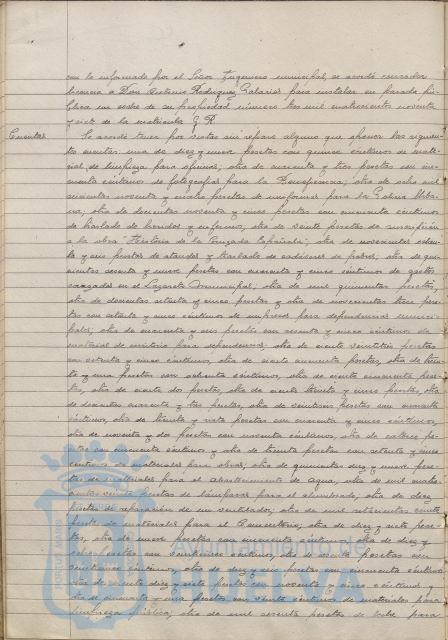 con lo informado por el Señor Ingeniero municipal, se acordó conceder
licencia a Don Antonio Rodriguez Palacios para instalar en parada pú-
blica un coche de su propiedad número tres mil cuatrocientos noventa
y siete de la matrícula
Cuentas Se acordó tener por vistas sin reparo alguno que oponer las siguien-
tes cuentas: una de diez y nueve pesetas con quince céntimos de mate-
rial de limpieza para oficinas; otra de cuarenta y tres pesetas con cin-
cuenta céntimos de fotografías para la Beneficencia; otra de ocho mil
cuatrocientas noventa y cuatro pesetas de uniformes para la Guardia Urba-
na; otra de doscientas noventa y cinco pesetas con cincuenta céntimos
de traslado de heridos y enfermos; otra de veinte pesetas de suscripción
a la obra "Historia de la Cruzada Española"; otra de novecientas ochen-
ta y seis pesetas de ataudes y traslado de cadáveres de pobres; otra de qui-
nientas sesenta y nueve pesetas con cuarenta y cinco céntimos de gastos
causados en el Lazareto municipal; otra de mil quinientas pesetas,
otra de doscientas setenta y cinco pesetas y otra de novecientas trece pese-
tas con setenta y cinco céntimos de impresos para dependencias munici-
pales; otra de cuarenta y seis pesetas con sesenta y cinco céntimos de
material de escritorio para dependencias; otra de ciento veintitrés pesetas
con setenta y cinco céntimos, otra de ciento cuarenta pesetas, otra de trein-
ta y una pesetas con ochenta céntimos, otra de ciento cincuenta pese-
tas, otra de ciento dos pesetas, otra de ciento treinta y cinco pesetas, otra
de doscientas cuarenta y tres pesetas, otra de veintiseis pesetas con cuarenta
céntimos, otra de treinta y siete pesetas con cuarenta y cinco céntimos,
otra de noventa y dos pesetas con noventa céntimos, otra de catorce pe-
setas con cincuenta céntimos y otra de treinta pesetas con setenta y cinco
céntimos de materiales para obras; otra de quinientas diez y nueve pese-
tas de materiales para el abastecimiento de agua; otra de mil cuatro-
cientas veinte pesetas de lámparas para el alumbrado; otra de diez
pesetas de reparación de un ventilador; otra de mil setecientas
pesetas de materiales para el Cementerio; otra de diez y siete pese-
tas, otra de nueve pesetas con cincuenta céntimos, otra de diez y
ocho pesetas con veinticinco céntimos, otra de sesenta pesetas con
céntimos, otra de diez y seis pesetas con cincuenta céntimos,
otra de ciento diez y siete pesetas con noventa y cinco céntimos y
otra de cincuenta y una pesetas con veinte céntimos de materiales para
limpieza pública; otra de mil sesenta pesetas de para